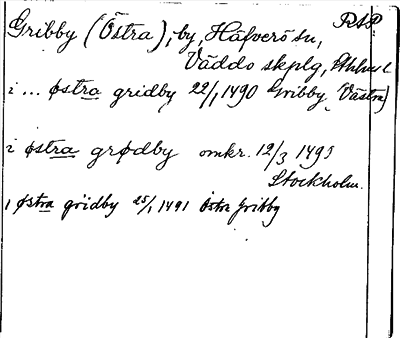 RAP.
Gribby (Östra), by, Häfverö sn,
Väddo skplg, Sthlms l
i ... østra gridby 22/1 1490 Gribby (Västra)
i østra grødby omkr. 12/3 1495
Stockholm.
i østra grödby 25/1 1491 Östra Gribby